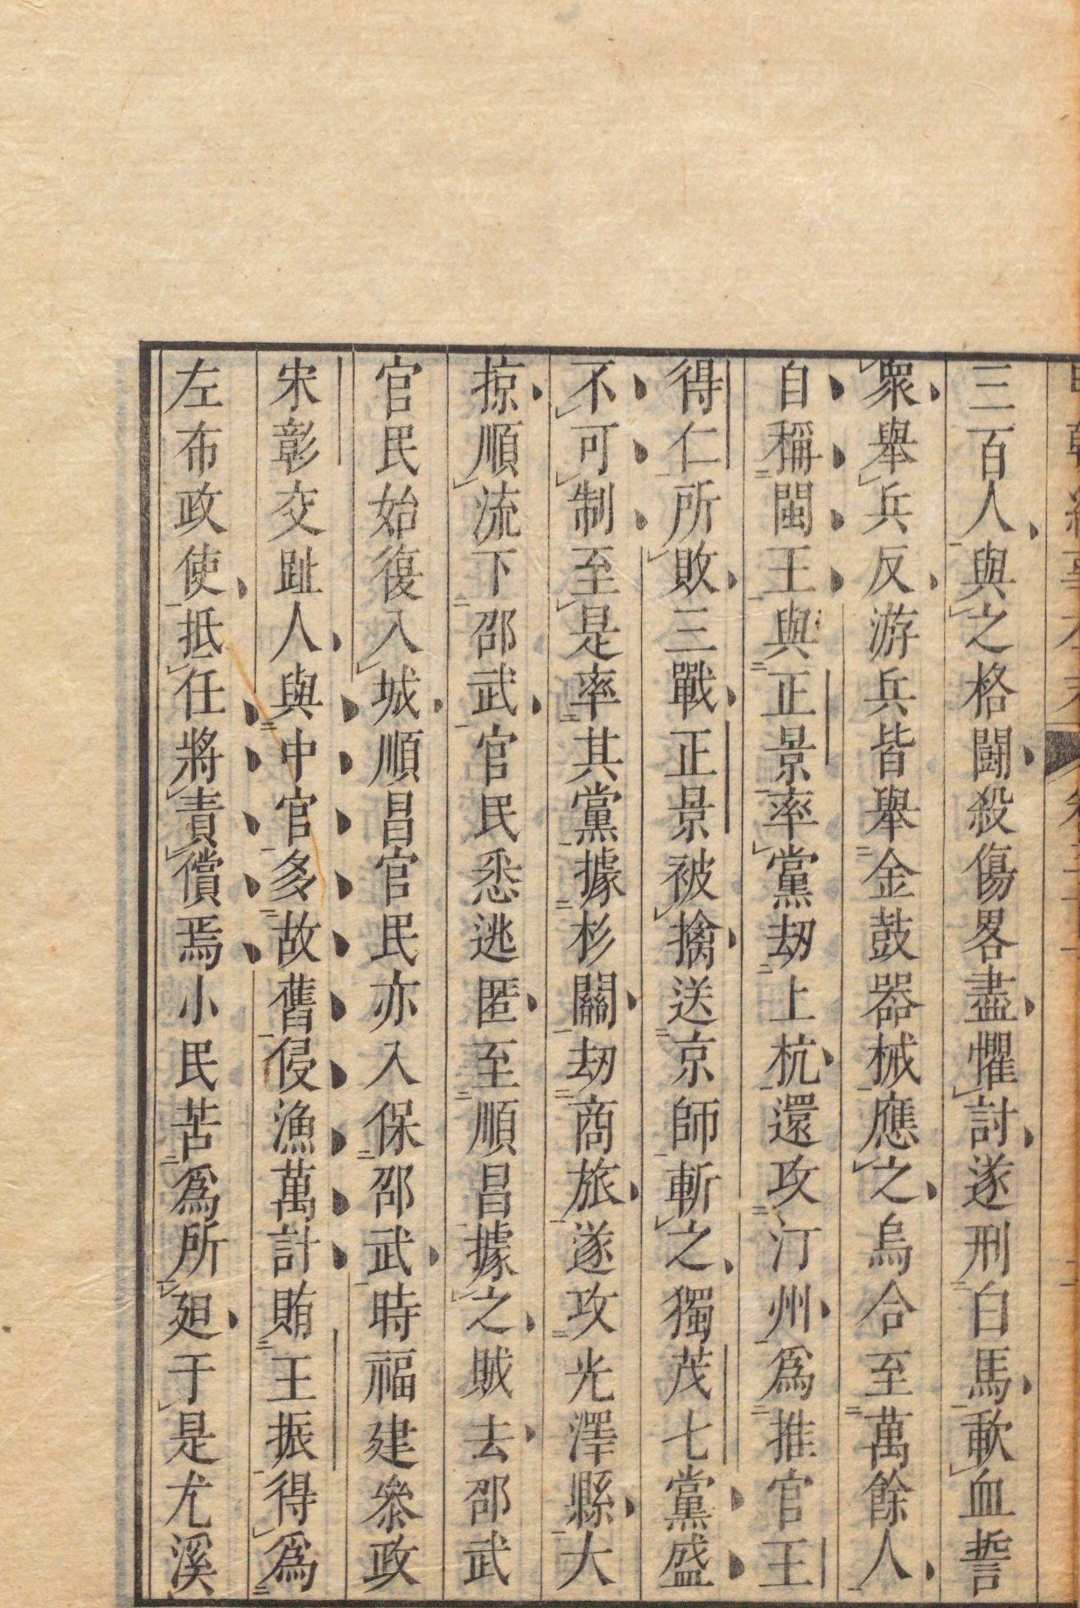 三百人與之格鬪殺傷畧盡懼討遂刑白馬歃血誓
衆舉兵反游兵皆舉金鼓器械應之烏合至萬餘人
自稱閩王與正景率黨刼上杭還攻汀州爲推官王
得仁所敗三戰正景被擒送京師斬之獨茂七黨盛
不可制至是率其黨據杉關刼商旅遂攻光澤縣大
掠順流下邵武官民悉逃匿至順昌據之賊去邵武
官民始復入城順昌官民亦入保邵武時福建叅政
宋彰交趾人與中官多故舊侵漁萬計賄王振得爲
左布政使抵任將責償焉小民苦爲所廹于是尤溪